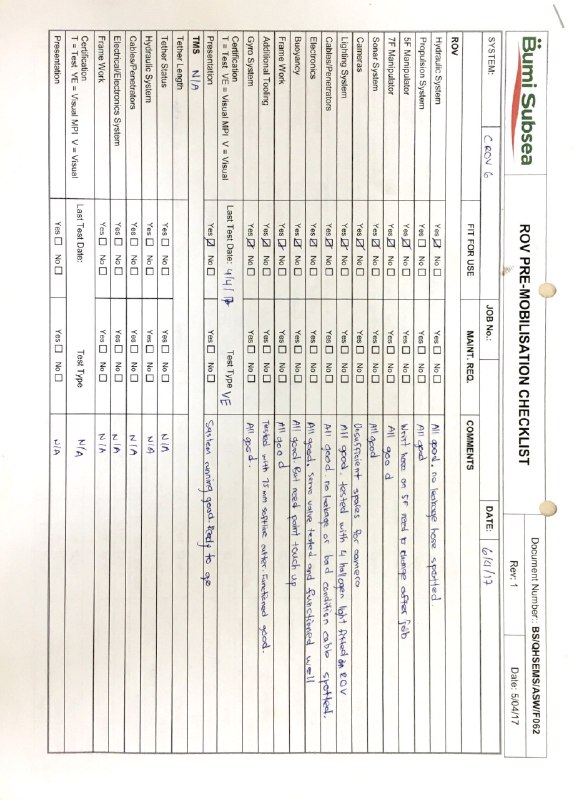 Bumi Subsea
ROV PRE-MOBILISATION CHECKLIST
Document Number:: BS/QHSEMS/ASW/F062
Rev: 1 Date: 5/04/17
SYSTEM: CROV 6 JOB No.: DATE: 6/4/17
ROV FIT FOR USE MAINT. REQ. COMMENTS
Hydraulic System Yes ☑ No ☐ Yes ☐ No ☐ All good, no leakage hose spotted
Propulsion System Yes ☐ No ☐ Yes ☐ No ☐ All good
5F Manipulator Yes ☑ No ☐ Yes ☐ No ☐ Wrist hose on 5F need to change after job
7F Manipulator Yes ☑ No ☐ Yes ☐ No ☐ All good
Sonar System Yes ☑ No ☐ Yes ☐ No ☐ All good
Cameras Yes ☑ No ☐ Yes ☐ No ☐ Unsufficient spares for camera
Lighting System Yes ☑ No ☐ Yes ☐ No ☐ All good. tested with 4 halogen light fitted on ROV
Cables/Penetrators Yes ☑ No ☐ Yes ☐ No ☐ All good no leakage or bad condition cable spotted.
Electronics Yes ☑ No ☐ Yes ☐ No ☐ All good, servo valve tested and functioned well
Buoyancy Yes ☑ No ☐ Yes ☐ No ☐ All good. But need paint touch up
Frame Work Yes ☑ No ☐ Yes ☐ No ☐ All good
Additional Tooling Yes ☑ No ☐ Yes ☐ No ☐ Tested with 75mm softline cutter. Functioned good.
Gyro System Yes ☑ No ☐ Yes ☐ No ☐ All good.
Certification Last Test Date: 4/4/17 Test Type VE
T = Test VE = Visual MPI V = Visual
Presentation Yes ☑ No ☐ Yes ☐ No ☐ System running good. Ready to go
TMS N/A
Tether Length
Tether Status Yes ☐ No ☐ Yes ☐ No ☐ N/A
Hydraulic System Yes ☐ No ☐ Yes ☐ No ☐ N/A
Cables/Penetrators Yes ☐ No ☐ Yes ☐ No ☐ N/A
Electrical/Electronics System Yes ☐ No ☐ Yes ☐ No ☐ N/A
Frame Work Yes ☐ No ☐ Yes ☐ No ☐ N/A
Certification Last Test Date: Test Type N/A
T = Test VE = Visual MPI V = Visual
Presentation Yes ☐ No ☐ Yes ☐ No ☐ N/A